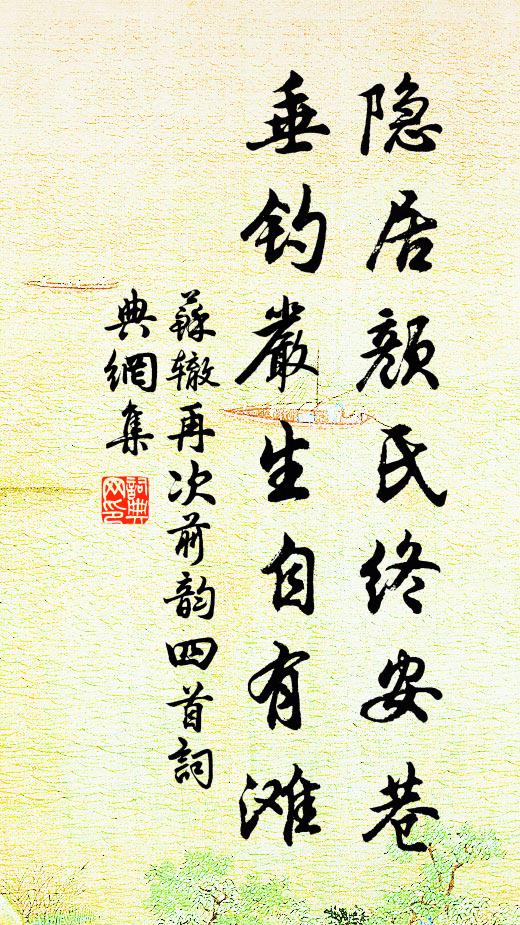 隐居颜氏终安巷
垂钓嚴生自有滩
蘇辙再次前韵四首詞
典網集
詞典网印